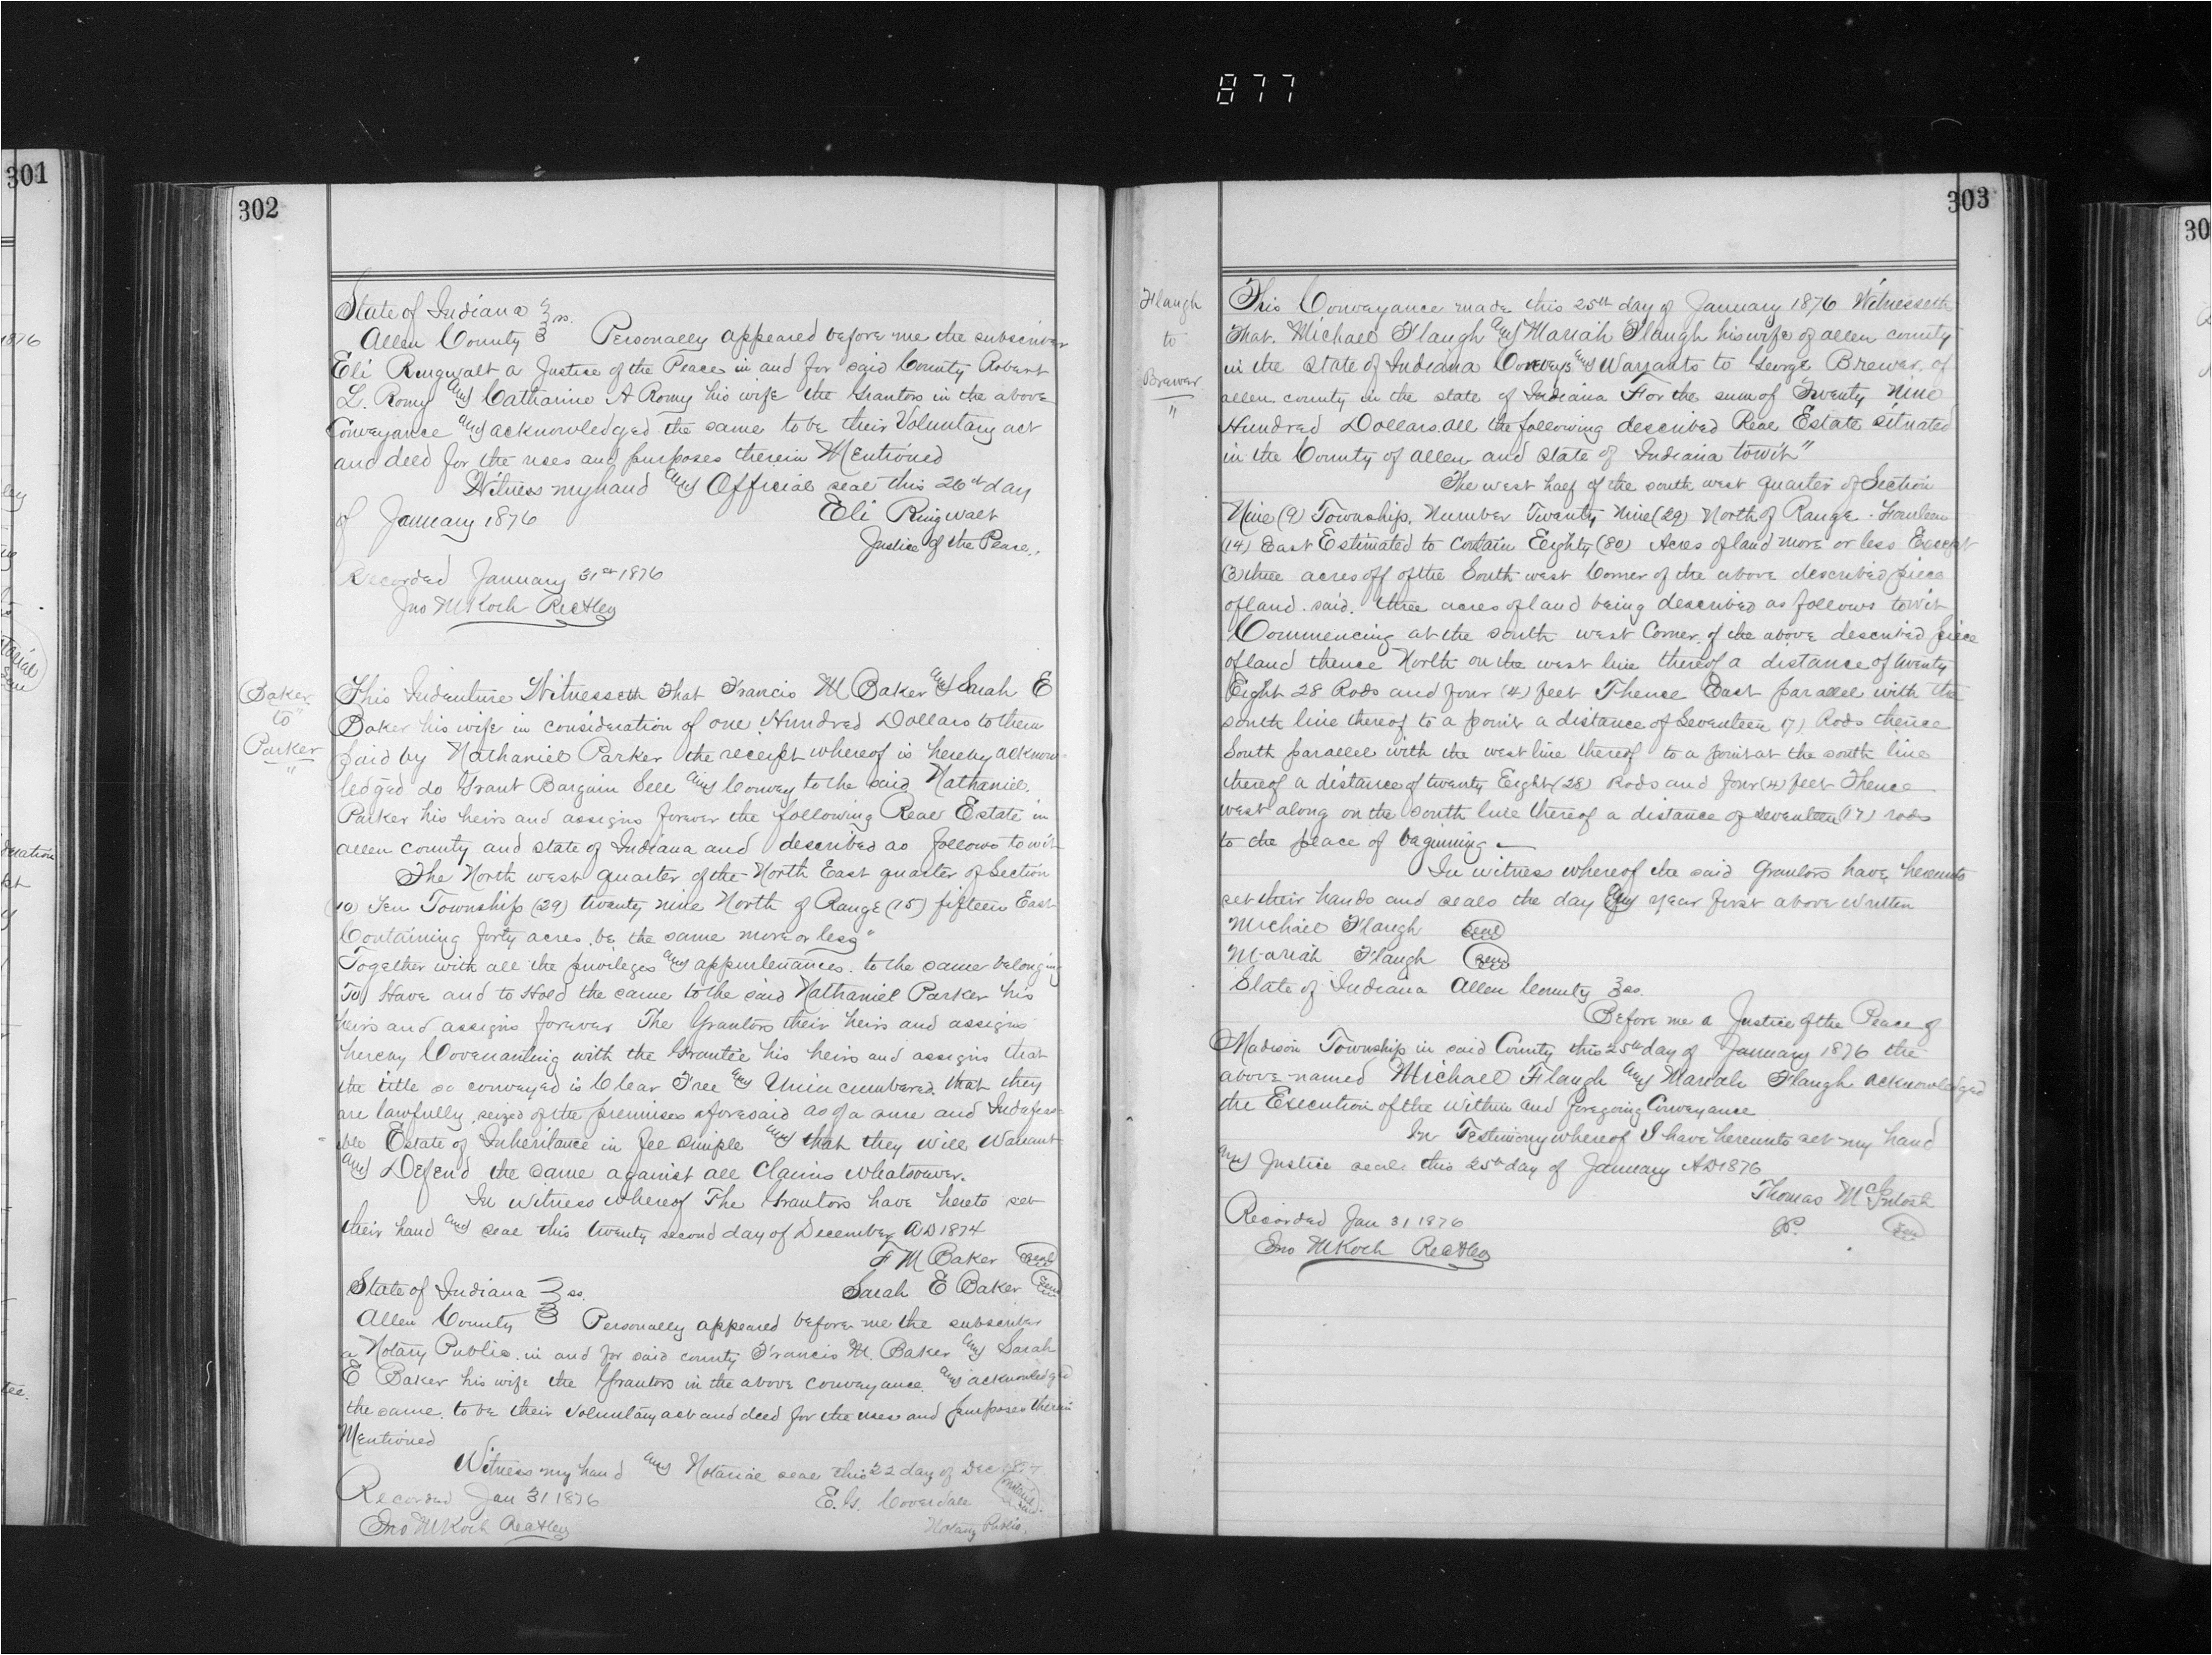 877
301
1876
302
State of Indiana } ss.
Allen County } Personally appeared before me the subscriber
Eli Ringwalt a Justice of the Peace in and for said County Robert
L. Romy and Catharine A Romy his wife the Grantors in the above
Conveyance and acknowledged the same to be their Voluntary act
and deed for the uses and purposes therein Mentioned
Witness my hand and Official seal this 26th day
of January 1876 Eli Ringwalt
Justice of the Peace.
Recorded January 31st 1876
Jno M Koch Rec Aley
Baker
to"
Parker
"
This Indenture Witnesseth That Francis M Baker and Sarah E
Baker his wife in consideration of one Hundred Dollars to them
paid by Nathaniel Parker the receipt whereof is hereby acknow-
ledged do Grant Bargain Sell and Convey to the said Nathaniel.
Parker his heirs and assigns forever the following Real Estate in
allen county and state of Indiana and described as follows to wit
The North west quarter of the North East quarter of Section
(10) Ten Township (29) twenty nine North of Range (15) fifteen East
Containing forty acres be the same more or less"
Together with all the privileges and appurtenances. to the same belonging
To Have and to Hold the same to the said Nathaniel Parker his
heirs and assigns forever The Grantors their heirs and assigns
hereby Covenanting with the Grantee his heirs and assigns that
the title so conveyed is Clear Free and Unincumbered. that they
are lawfully seized of the premises aforesaid as of a sure and Indefeas-
ible Estate of Inheritance in fee simple and that they will Warrant
and Defend the same against all Claims whatsoever.
In witness whereof The Grantors have hereto set
their hand and seal this twenty second day of December AD 1874
F M Baker (seal)
State of Indiana } ss. Sarah E Baker (seal)
Allen County } Personally appeared before me the subscriber
a Notary Public. in and for said county Francis M. Baker and Sarah
E Baker his wife the Grantors in the above conveyance. and acknowledged
the same. to be their voluntary act and deed for the uses and purposes therein
Mentioned
Witness my hand and Notarial seal this 22 day of Dec 1874
Recorded Jan 31 1876 E. G. Coverdale (Notarial Seal)
Jno M Koch Rec Aley Notary Public.
303
Flaugh
to
Brewer
"
This Conveyance made this 25th day of January 1876 Witnesseth
That. Michael Flaugh and Mariah Flaugh his wife of allen county
in the State of Indiana Conveys and Warrants to George Brewer. of
allen county in the state of Indiana For the sum of Twenty Nine
Hundred Dollars. all the following described Real Estate situated
in the County of allen and state of Indiana towit"
The west half of the south west quarter of Section
Nine (9) Township. Number Twenty Nine (29) North of Range Fourteen
(14) East Estimated to Contain Eighty (80) Acres of land more or less Except
(3) three acres off of the South west Corner of the above described piece
of land. said. three acres of land being described as follows towit
Commencing at the south west Corner. of the above described piece
of land thence North on the west line thereof a distance of twenty
Eight 28 Rods and four (4) feet Thence East parallel with the
south line thereof to a point a distance of Seventeen 17) Rods thence
South parallel with the west line thereof to a point at the south line
thereof a distance of twenty Eight (28) Rods and four (4) feet Thence
west along on the south line thereof a distance of Seventeen (17) rods
to the place of beginning
In witness whereof the said Grantors have hereunto
set their hands and seals the day and year first above written
Michael Flaugh (seal)
Mariah Flaugh (seal)
State of Indiana Allen County } ss.
Before me a Justice of the Peace of
Madison Township in said County this 25th day of January 1876 the
above named Michael Flaugh and Mariah Flaugh acknowledged
the Execution of the within and foregoing Conveyance
In Testimony whereof I have hereunto set my hand
and Justice seal this 25th day of January AD 1876
Thomas McIntosh
Recorded Jan 31 1876 JP. (seal)
Jno M Koch Rec Aley
30